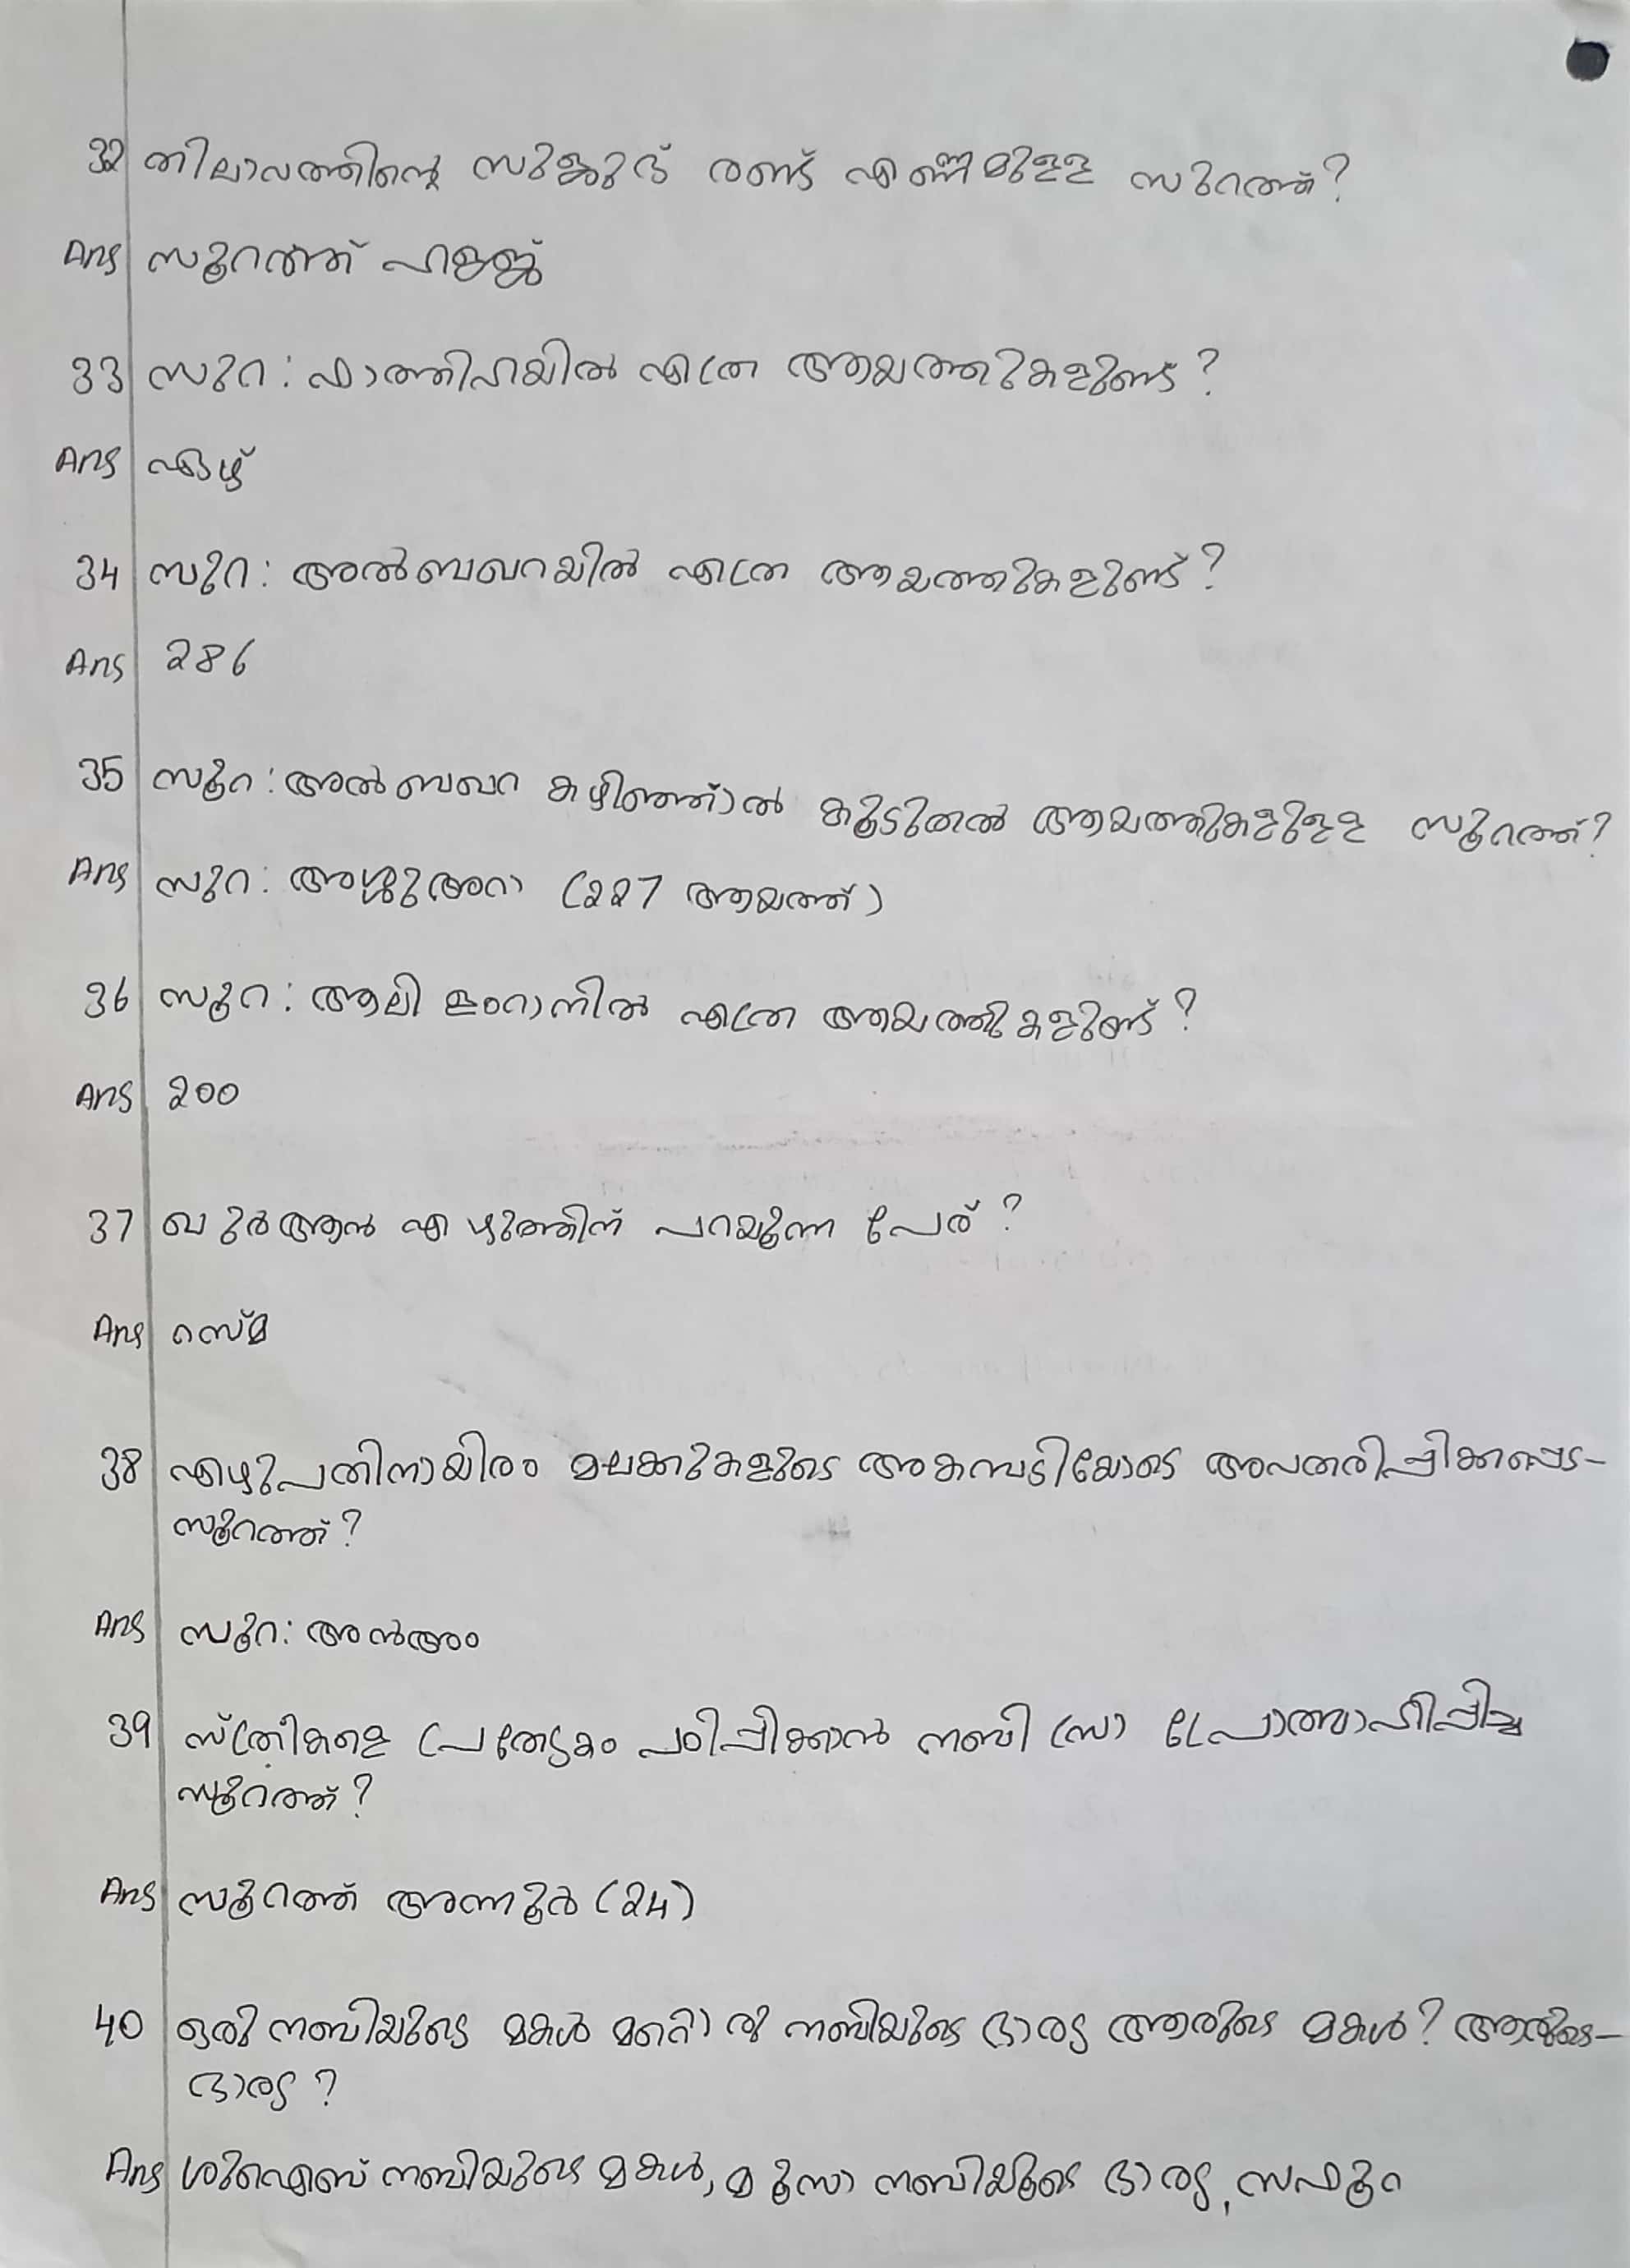 32 തിലാവത്തിന്റെ സുജൂദ് രണ്ട് എണ്ണമുള്ള സുറത്ത്?
Ans സൂറത്ത് ഹജ്ജ്
33 സുറ: ഫാത്തിഹയിൽ എത്ര ആയത്തുകളുണ്ട്?
Ans ഏഴ്
34 സുറ: അൽബഖറയിൽ എത്ര ആയത്തുകളുണ്ട്?
Ans 286
35 സൂറ: അൽ ബഖറ കഴിഞ്ഞാൽ കൂടുതൽ ആയത്തുകളുള്ള സൂറത്ത്?
Ans സുറ: അശ്ശുഅറാ (227 ആയത്ത്)
36 സൂറ: ആലി ഇംറാനിൽ എത്ര ആയത്തുകളുണ്ട്?
Ans 200
37 ഖുർആൻ എഴുത്തിന് പറയുന്ന പേര്?
Ans റസ്മ
38 എഴുപതിനായിരം മലക്കുകളുടെ അകമ്പടിയോടെ അവതരിപ്പിക്കപ്പെട-
സൂറത്ത്?
Ans സൂറ: അൻആം
39 സ്ത്രീകളെ പ്രത്യേകം പഠിപ്പിക്കാൻ നബി (സ) പ്രോത്സാഹിപ്പിച്ച
സൂറത്ത്?
Ans സൂറത്ത് അന്നൂർ (24)
40 ഒരു നബിയുടെ മകൾ മറ്റൊരു നബിയുടെ ഭാര്യ ആരുടെ മകൾ? ആരുടെ-
ഭാര്യ?
Ans ശുഐബ് നബിയുടെ മകൾ, മൂസാ നബിയുടെ ഭാര്യ, സഫൂറ